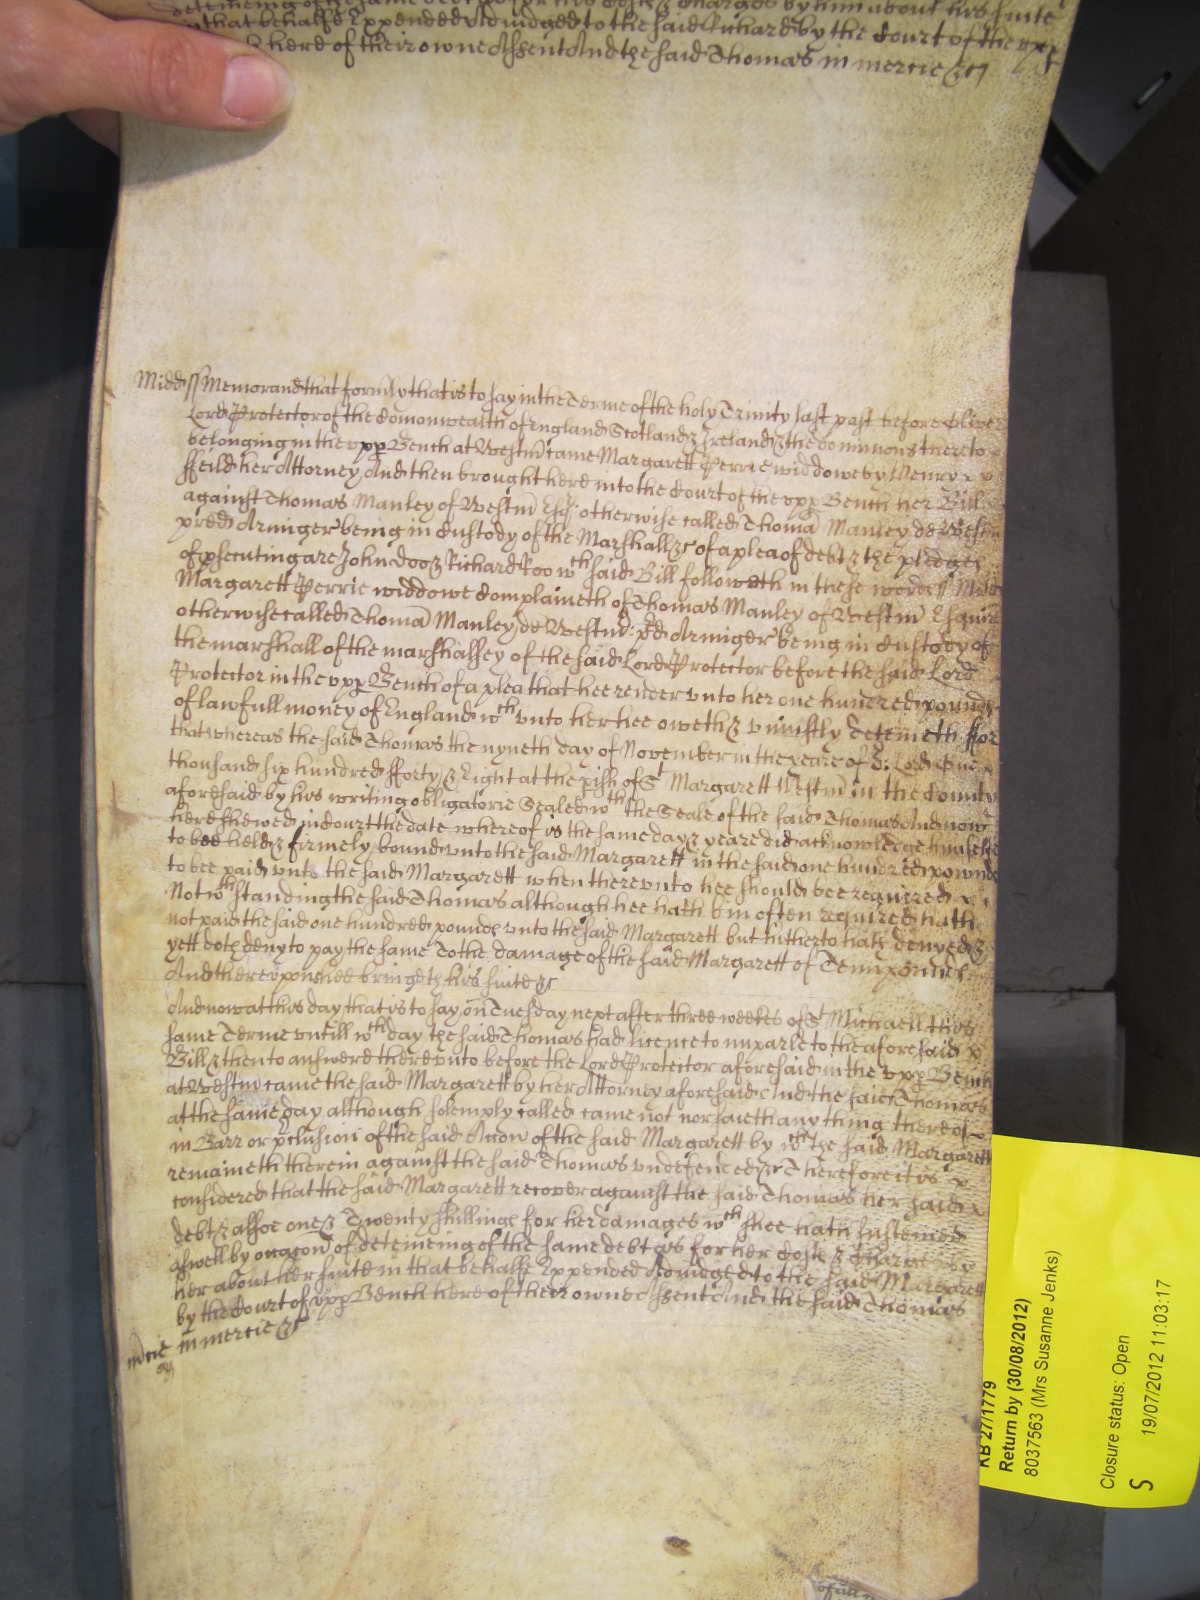 deteineing of the same debt as for his Costs & Charges by him about his suite
in that behalfe Expended Adiudged to the said Richard by the Court of the vpp
here of their owne Assent And the said Thomas in mercie &c
Midd ss Memorand that formly that is to say in the Terme of the holy Trinity last past before Oliver
Lord Protector of the Comonwealth of England Scotland & Ireland & the dominions thereto
belonging in the vpp Bench at Westm came Margarett Perrie widdowe by Henry
ffeild her Attorney And then brought here into the Court of the vpp Bench her Bill
against Thomas Manley of Westm Esqr otherwise called Thoma Manley de Westm
pred Armiger being in Custody of the Marshall &c of a plea of debt & the pledges
of psecuting are John Doo & Richard Roo wch said Bill followeth in these words ss Midd
Margarett Perrie widdowe Complaineth of Thomas Manley of Westm Esquire
otherwise called Thoma Manley de Westm pd Armiger being in Custody of
the marshall of the marshalsey of the said Lord Protector before the said Lord
Protector in the vpp Bench of a plea that hee render vnto her one hundred pounds
of lawfull money of England wch vnto her hee oweth & vniustly deteineth ffor
that whereas the said Thomas the nyneth day of November in the yeare of or Lord One
thousand six hundred fforty & Eight at the pish of St Margarett Westm in the County
aforesaid by his writing obligatorie Sealed wth the Seale of the said Thomas And now
here shewed in Court the date whereof is the same day & yeare did acknowledge himselfe
to bee held & firmely bound vnto the said Margarett in the said one hundred pownds
to bee paid vnto the said Margarett when therevnto hee should bee required
Notwthstanding the said Thomas although hee hath bin often required hath
not paid the said one hundred pounds vnto the said Margarett but hitherto hath denyed &
yett doth deny to pay the same To the damage of the said Margarett of Tenn pounds
And therevpon shee bringeth his suite &c
And now at this day that is to say on Tuesday next after three weekes of St Michaell this
same Terme vntill wch day the said Thomas had licence to imparle to the aforesaid
Bill & then to answere therevnto before the Lord Protector aforesaid in the vpp Bench
at Westm came the said Margarett by her Attorney aforesaid And the said Thomas
at the same day although solemply called came not nor saieth any thing thereof
in Barr or pclusion of the said Accon of the said Margarett by wch the said Margarett
remaineth therein against the said Thomas vndefended &c Therefore it is
considered that the said Margarett recover against the said Thomas her said
debt & alsoe one & Twenty shillings for her damages wch shee hath susteined
aswell by occacon of deteineing of the same debt as for her Costs & Charges by
her about her suite in that behalfe Expended Adiudged to the said Margarett
by the Court of vpp Bench here of their owne Assent And the said Thomas
mcie in mercie &c
KB 27/1779
Return by (30/08/2012)
8037563 (Mrs Susanne Jenks)
Closure status: Open
S 19/07/2012 11:03:17